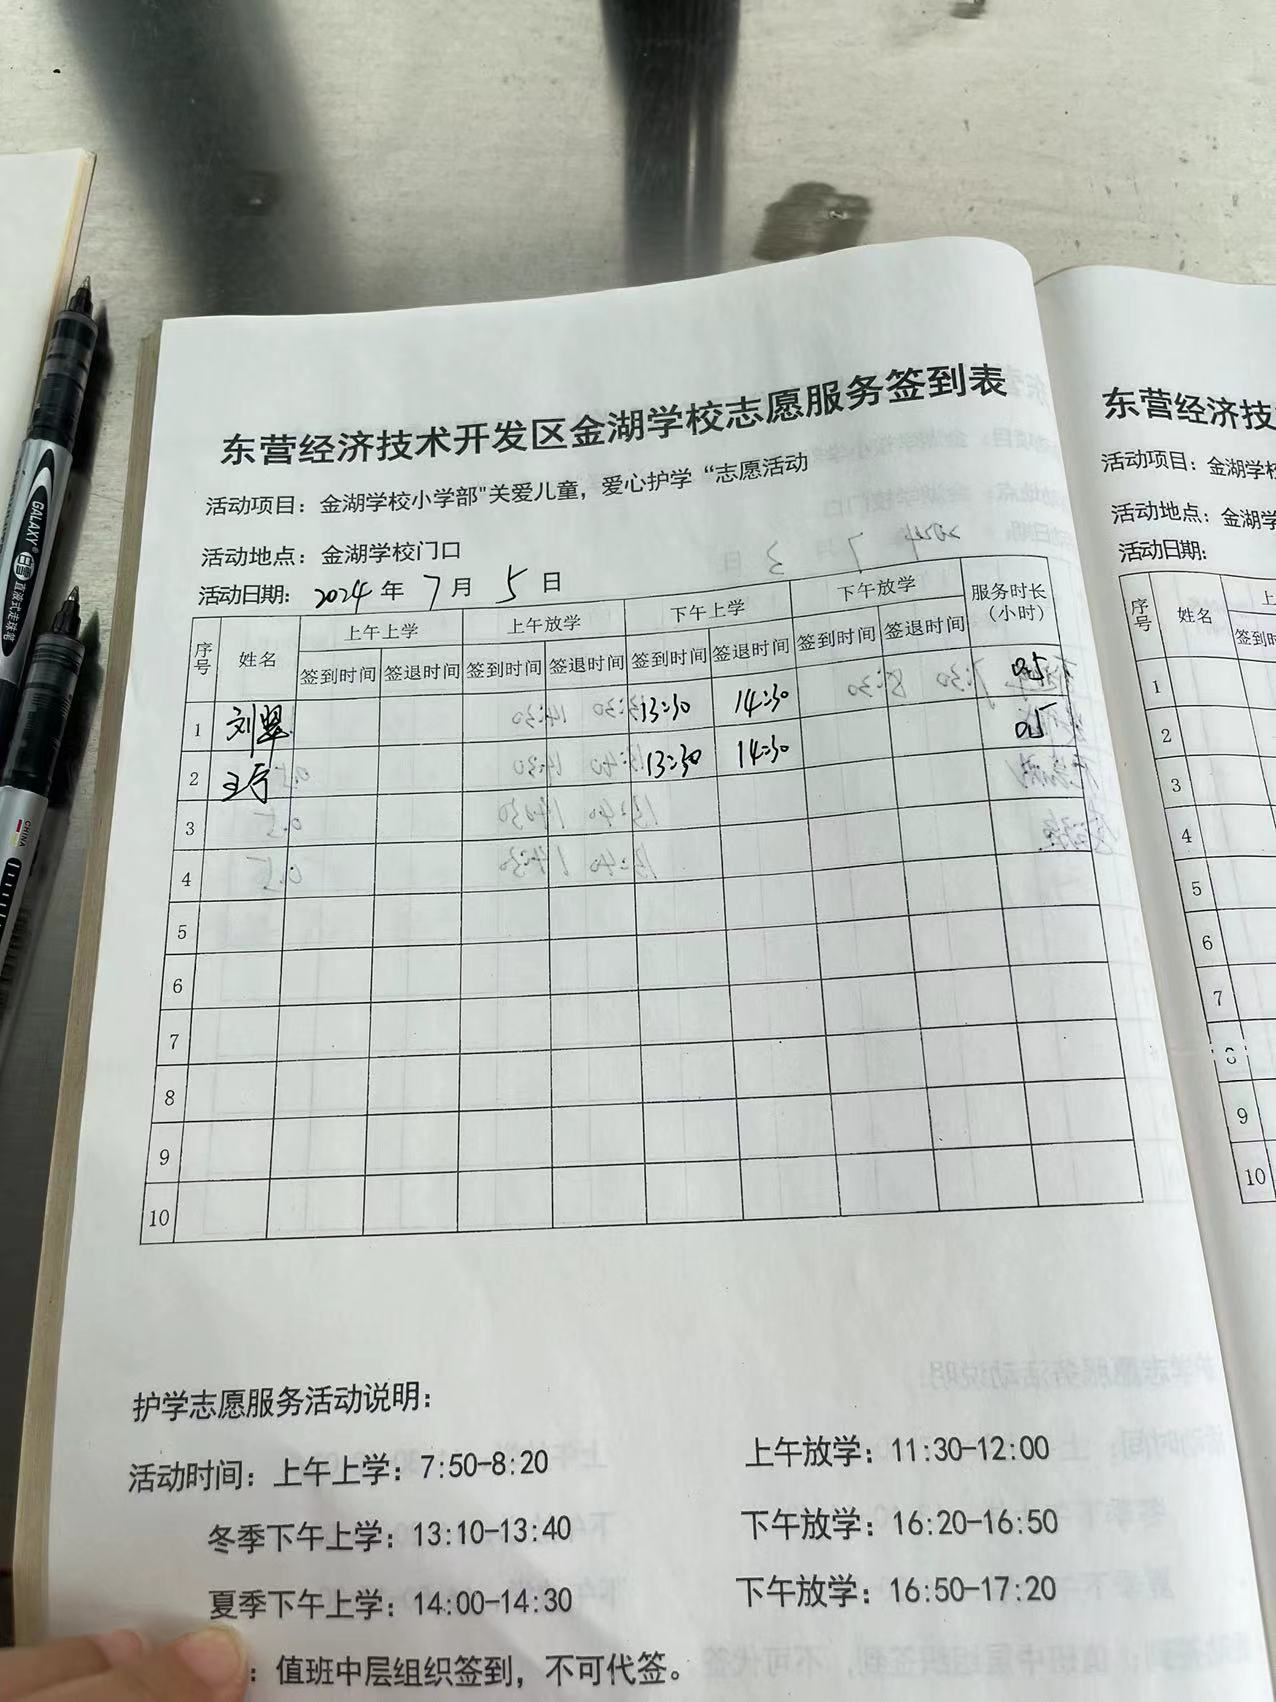 东营经济技术开发区金湖学校志愿服务签到表
活动项目：金湖学校小学部"关爱儿童，爱心护学“志愿活动
活动地点：金湖学校门口
活动日期：2024年 7月 5日
序号 姓名 上午上学 上午放学 下午上学 下午放学 服务时长（小时）
签到时间 签退时间 签到时间 签退时间 签到时间 签退时间 签到时间 签退时间
1 刘翠 13:30 14:30 0.5
2 13:30 14:30 0.5
3
4
5
6
7
8
9
10
护学志愿服务活动说明：
活动时间：上午上学：7:50-8:20 上午放学：11:30-12:00
冬季下午上学：13:10-13:40 下午放学：16:20-16:50
夏季下午上学：14:00-14:30 下午放学：16:50-17:20
：值班中层组织签到，不可代签。
东营经济技
活动项目：金湖学校
活动地点：金湖学
活动日期：
序号 姓名 上
签到时
1
2
3
4
5
6
7
8
9
10
GALAXY 白雪 直液式走珠笔
CHINA